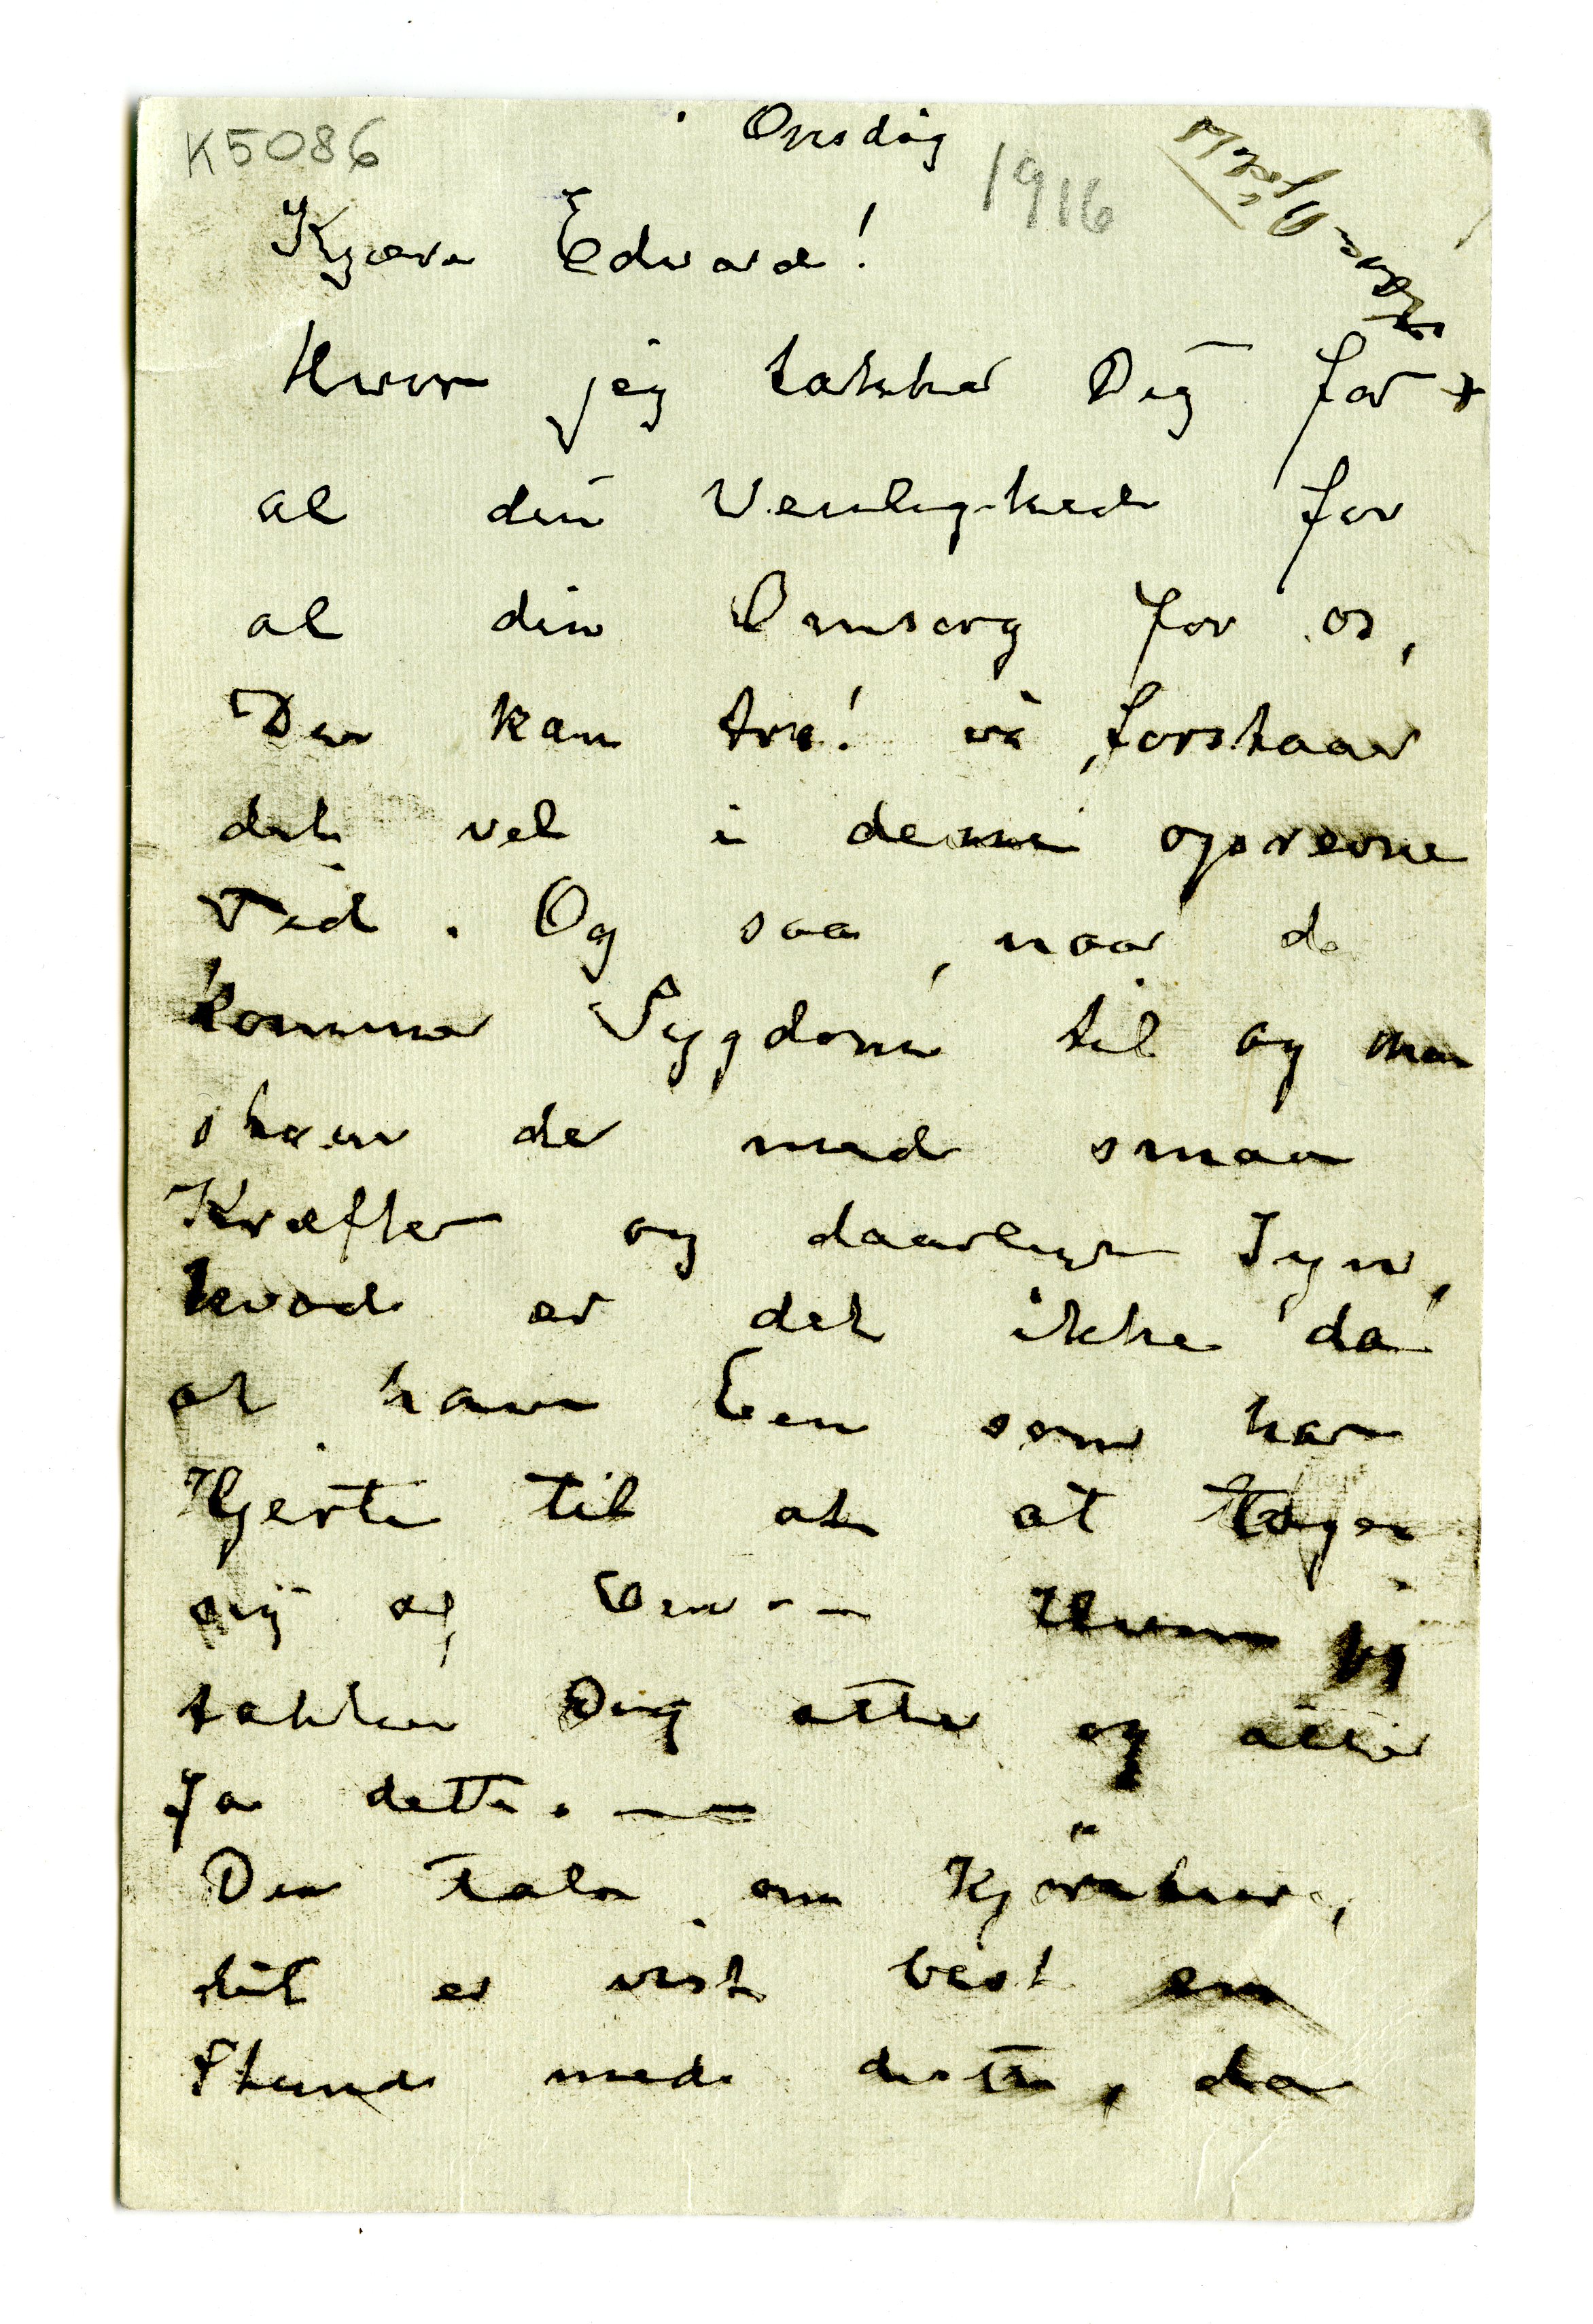 K5086
Onsdag
1916
Kjære Edvard!
Hvor jeg takker Dig for
al din Venlighed for
al din Omsorg for os,
Du kan tro! vi forstaar
det vel i denne oprevne
Tid. Og saa, naar de
kommer Sygdom til og man
skaer de med smaa
Kræfter og daarligt Syn,
hvad er det ikke da
at have Een som har
Hjerte til at at tage
sig af En - - Hvor jeg
takker Dig atter og atter
Ja dette. —
Du taler om Kjørnhuse,
det er vist best en
Stund med dette, da